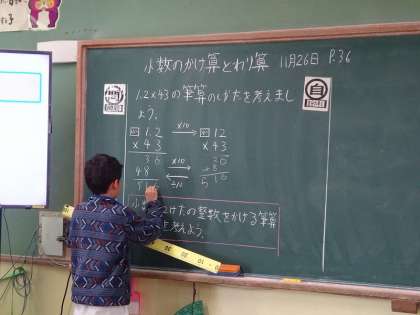 小数のかけ算とわり算 11月26日 P.36
1.2×43の筆算のしかたを考えまし
ょう。
1.2 ×10 12
×43 ×43
36 ×10 36
48 ÷10
516
けたの整数をかける筆算
を考えよう。
自